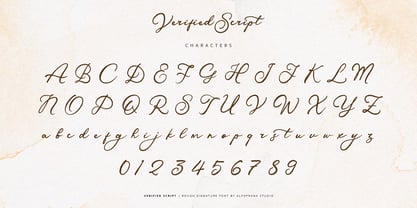 Verified Script
CHARACTERS
A B C D E F G H I J K L M
N O P Q R S T U V W X Y Z
a b c d e f g h i j k l m n o p q r s t u v w x y z
0 1 2 3 4 5 6 7 8 9
VERIFIED SCRIPT | ROUGH SIGNATURE FONT BY ALPHPRANA STUDIO